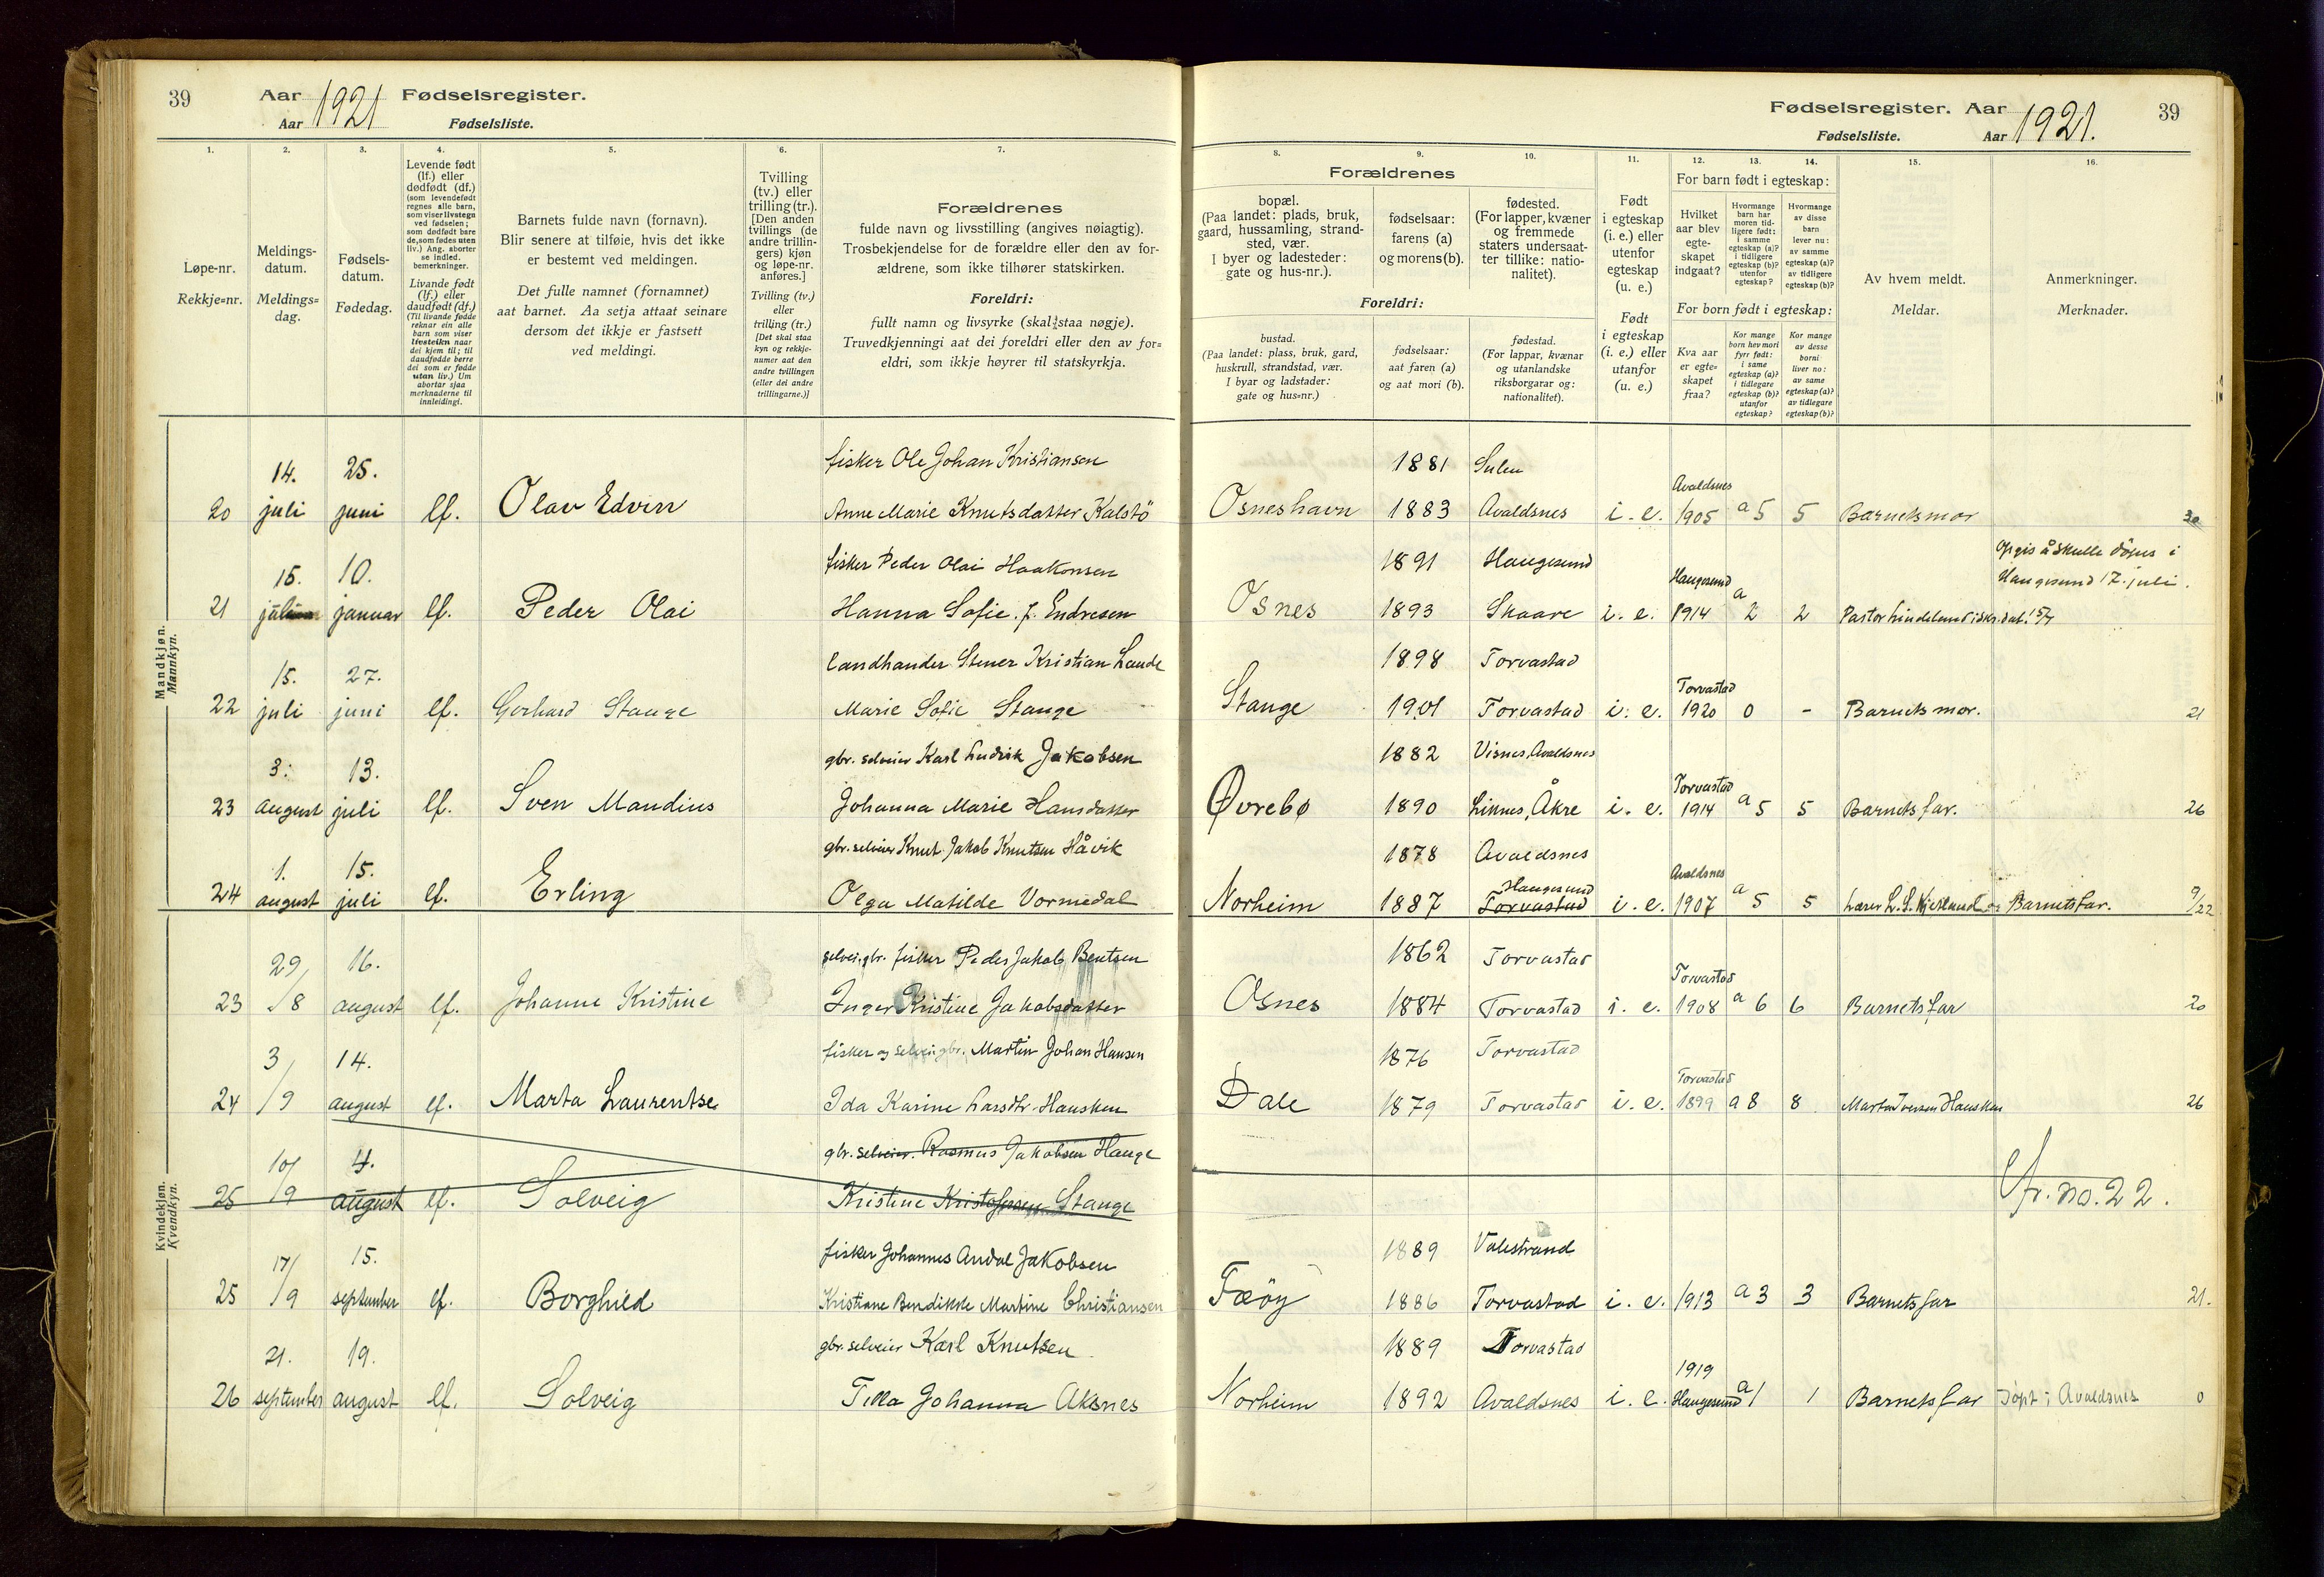 39
Aar 1921 Fødselsregister.
Aar Fødselsliste.
Fødselsregister. Aar
Fødselsliste. Aar 1921.
39
1. 2. 3. 4. 5. 6. 7.
Løpe-nr.
Rekkje=nr.
Meldings-
datum.
Meldings=
dag.
Fødsels-
datum.
Fødedag.
Levende født
(lf.) eller
dødfødt (df.)
(som levendefødt
regnes alle barn,
som viser livstegn
ved fødselen;
som dødfødt bare
de, som fødes uten
liv.) Ang. aborter
se indled.
bemerkninger.
Livande født
(lf.) eller
daudfødt (df.)
(Til livande fødde
reknar ein alle
barn som viser
livsteikn naar
dei kjem til; til
daudfødde berre
dei som er fødde
utan liv.) Um
abortar sjaa
merknaderne til
innleidingi.
Barnets fulde navn (fornavn).
Blir senere at tilføie, hvis det ikke
er bestemt ved meldingen.
Det fulle namnet (fornamnet)
aat barnet. Aa setja attaat seinare
dersom det ikkje er fastsett
ved meldingi.
Tvilling
(tv.) eller
trilling (tr.).
[Den anden
tvillings (de
andre trillin-
gers) kjøn
og løpe-nr.
anføres.]
Tvilling (tv.)
eller
trilling (tr.)
[Det skal staa
kyn og rekkje-
numer aat den
andre tvillingen
(eller dei andre
trillingarne.)]
Forældrenes
fulde navn og livsstilling (angives nøiagtig).
Trosbekjendelse for de forældre eller den av for-
ældrene, som ikke tilhører statskirken.
Foreldri:
fullt namn og livsyrke (skal staa nøgje).
Truvedkjenningi aat dei foreldri eller den av for=
eldri, som ikkje høyrer til statskyrkja.
8. 9. 10. 11. 12. 13. 14. 15. 16.
Forældrenes
bopæl.
(Paa landet: plads, bruk,
gaard, hussamling, strand-
sted, vær.
I byer og ladesteder:
gate og hus-nr.).
fødselsaar:
farens (a)
og morens (b).
fødested.
(For lapper, kvæner
og fremmede
staters undersaat-
ter tillike: natio-
nalitet).
Foreldri:
bustad.
(Paa landet: plass, bruk, gard,
huskrull, strandstad, vær.
I byar og ladstader:
gate og hus=nr.)
fødselsaar:
aat faren (a)
og aat mori (b).
fødestad.
(For lappar, kvænar
og utanlandske
riksborgarar og:
nationalitet).
Født
i egteskap
(i. e.) eller
utenfor
egteskap
(u. e.)
Født
i egteskap
(i. e.) eller
utanfor
(u. e.)
For barn født i egteskap:
Hvilket
aar blev
egte-
skapet
indgaat?
Hvormange
barn har
moren tid-
ligere født:
i samme
egteskap (a)?
i tidligere
egteskap (b)?
utenfor
egteskap?
Hvormange
av disse
barn
lever nu:
av samme
egteskap (a)?
av tidligere
egteskap (b)?
For born født i egteskap:
Kva aar
er egte=
skapet
fraa?
Kor mange
born hev mori
fyrr født:
i same
egteskap (a)?
i tidlegare
egteskap (b)?
utanfor
egteskap?
Kor mange
av desse
borni
liver no:
av same
egteskap (a)?
av tidlegare
egteskap (b)?
Av hvem meldt.
Meldar.
Anmerkninger.
Merknader.
Mandkjøn.
Mannkyn.
14. 25. fisker Ole Johan Kristiansen 1881 Sulen
20 juli juni lf. Olav Edvin Anne Marie Knutsdatter Kalstö Osneshavn 1883 Avaldsnes i. e. Avaldsnes 1905 a 5 5 Barnets mor 30
15. 10. fisker Peder Olai Haakonsen 1891 Haugesund Opgis å skulle döpes i
Haugesund 17. juli.
21 juli januar lf. Peder Olai Hanna Sofie f. Endresen Osnes 1893 Skaare i. e. Haugesund 1914 a 2 2 Pastor
15. 27. Kristian 1898 Torvastad
22 juli juni lf. Gerhard Stange Marie Sofie Stange Stange 1901 Torvastad i. e. Torvastad 1920 0 - Barnets mor. 21
3. 13. gbr. selveier Karl Ludvik Jakobsen 1882 Visnes, Avaldsnes
23 august juli lf. Sven Mandius Johanna Marie Hansdatter Øvrebø 1890 Liknes, Åkre i. e. Torvastad 1914 a 5 5 Barnets far. 26
1. 15. gbr. selveier Knut Jakob Knutsen Håvik 1878 Avaldsnes
24 august juli lf. Erling Olga Matilde Vormedal Norheim 1887 Haugesund Torvastad i. e. Avaldsnes 1907 a 5 5 Lærer L. S. Kjerland Barnets far. 9/22
Kvindekjøn.
Kvendkyn.
29/8 16. selvei. gbr. fisker Peder Jakob Bentsen 1862 Torvastad
23 august lf. Johanne Kristine Inger Kristine Jakobsdatter Osnes 1884 Torvastad i. e. Torvastad 1908 a 6 6 Barnets far 20
3/9 14. fisker og selvei. gbr. Martin Johan Hansen 1876 Torvastad
24 august lf. Marta Laurentse Ida Karine Larsdtr. Hausken Dale 1879 Torvastad i. e. Torvastad 1899 a 8 8 Marta Iversen Hausken 26
10/9 4. gbr. selveier. Rasmus Jakobsen Hauge
25 august lf. Solveig Kristine Stange Cfr. no. 22.
17/9 15. fisker Johannes Andal Jakobsen 1889 Valestrand
25 september lf. Borghild Kristiane Bendikke Martine Christiansen Fæöy 1886 Torvastad i. e. 1913 a 3 3 Barnets far 21.
21. 19. gbr. selveier Karl Knutsen 1889 Torvastad
26 september august lf. Solveig Tilla Johanna Aksnes Norheim 1892 Avaldsnes i. e. 1919 Haugesund a 1 1 Barnets far Döpt i Avaldsnes 0